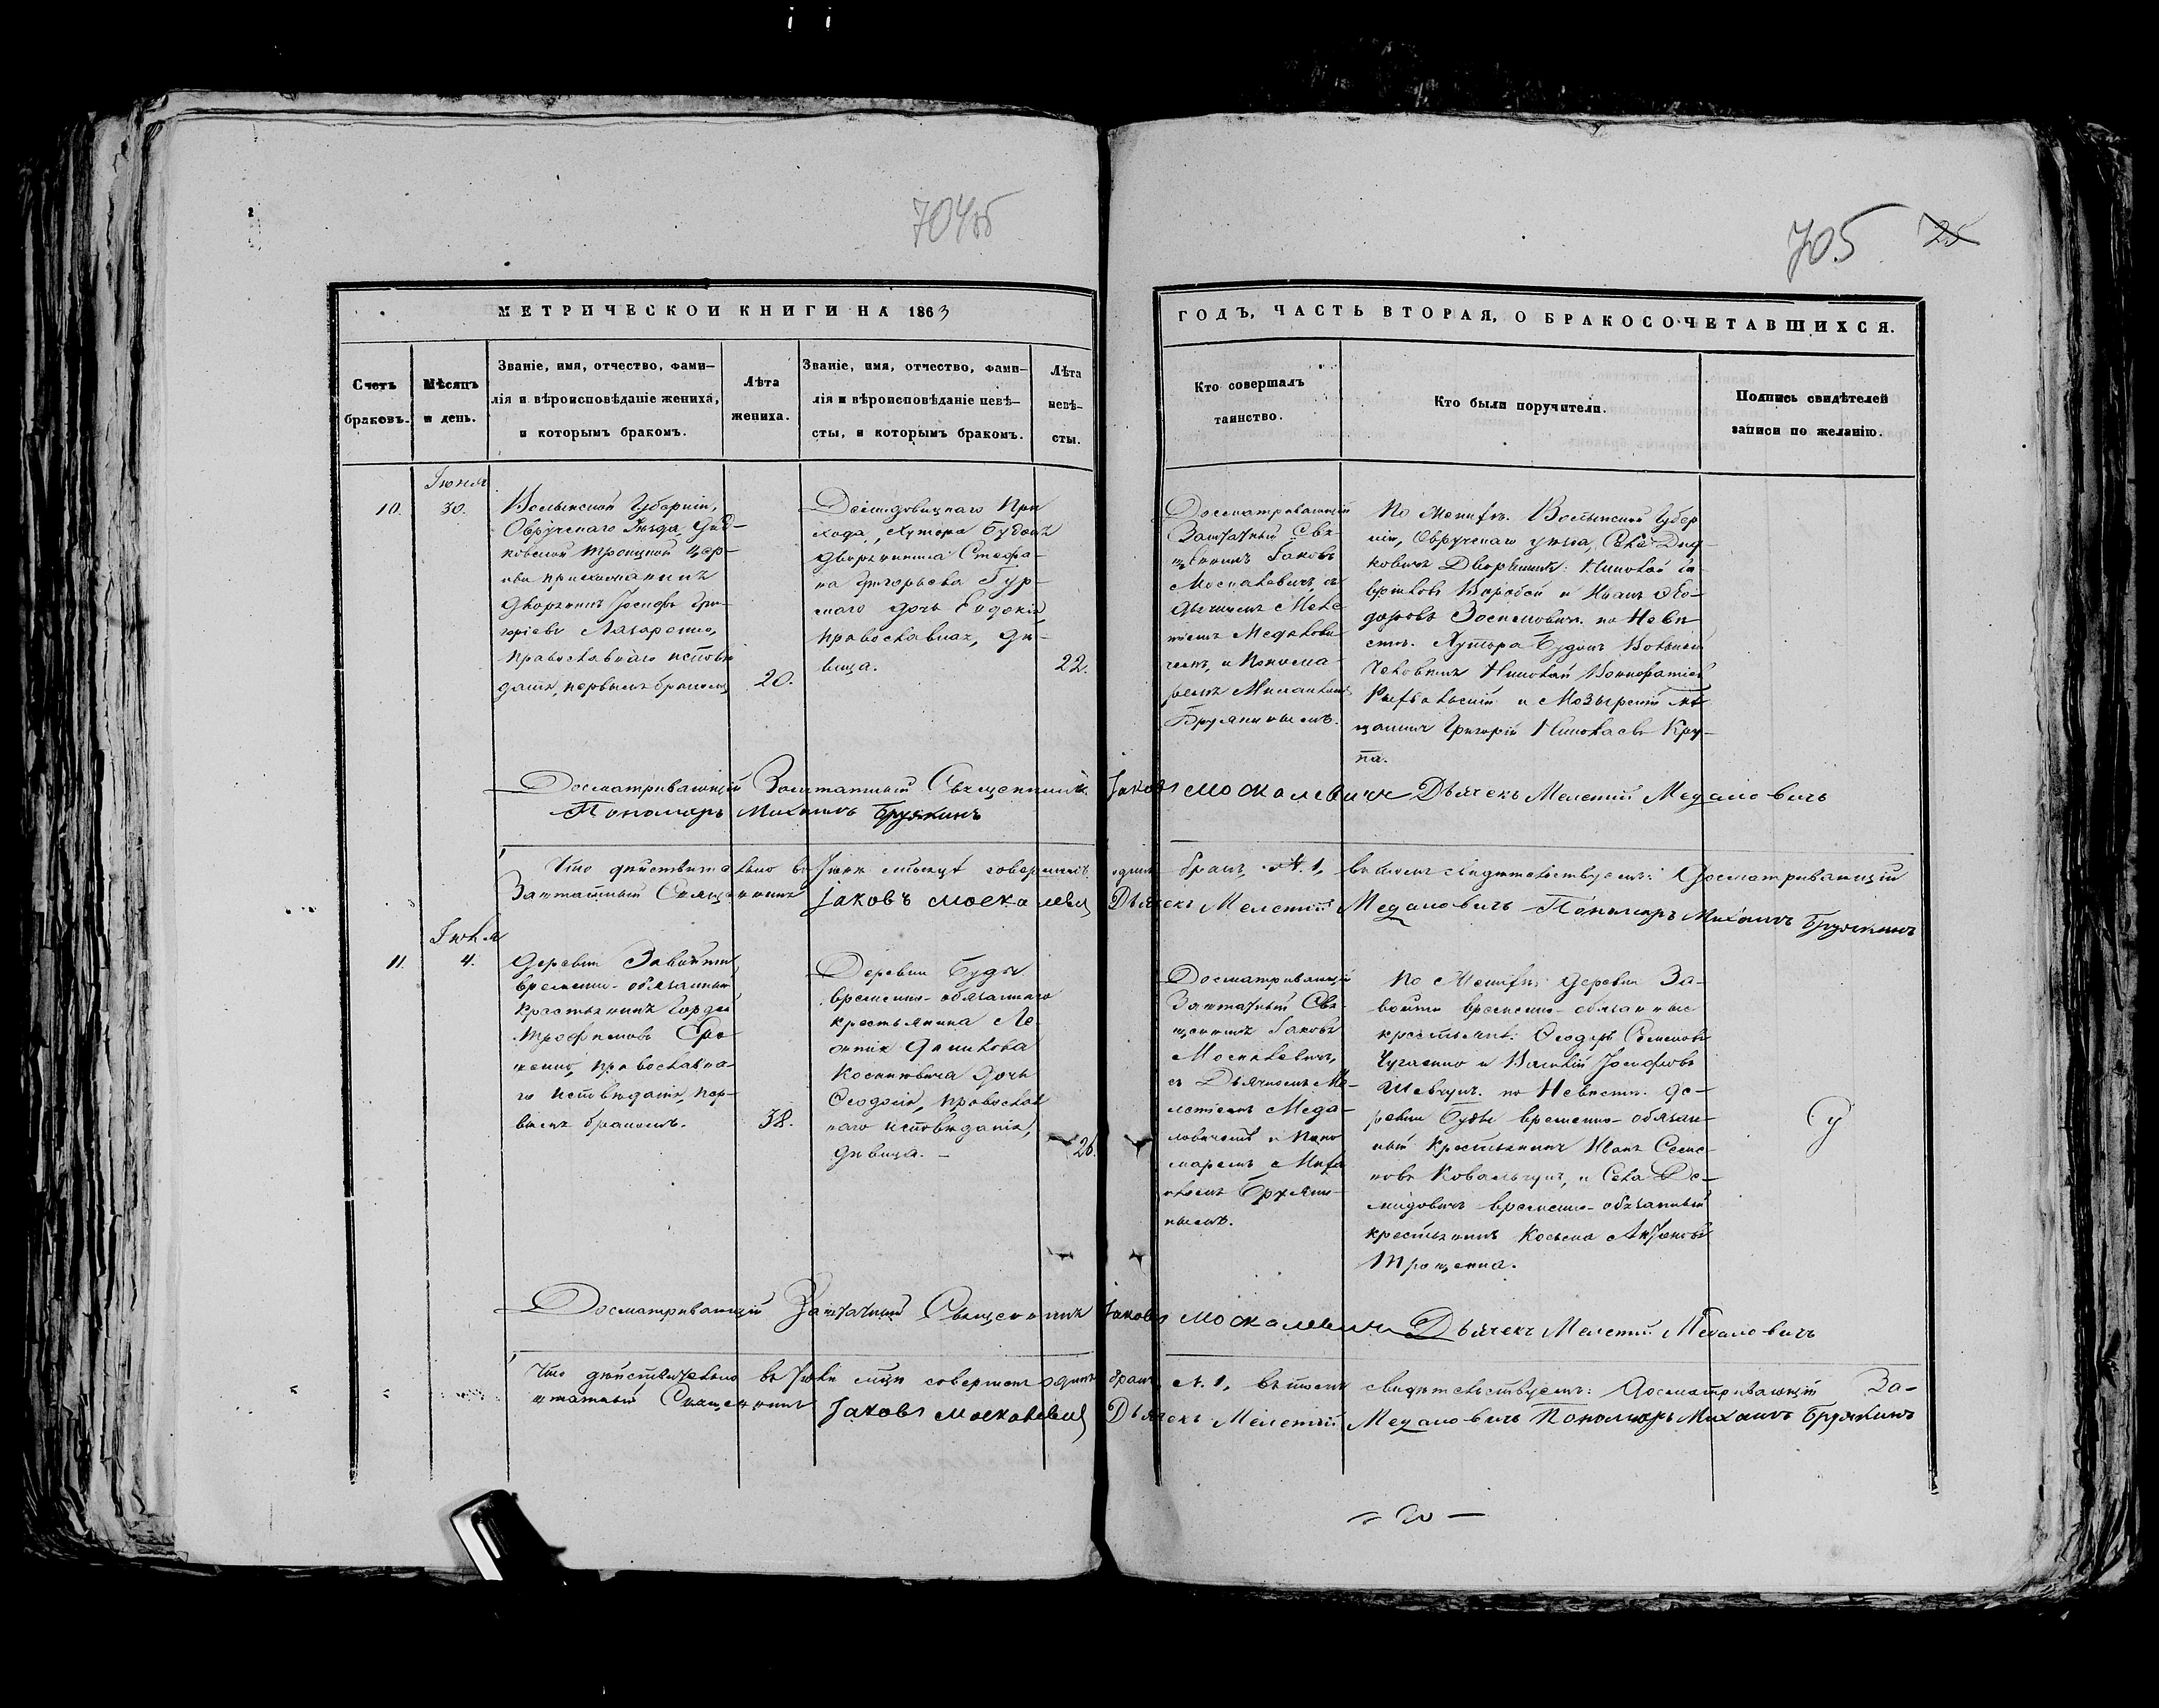 704об
705 25
МЕТРИЧЕСКОЙ КНИГИ НА 1863
ГОДЪ, ЧАСТЬ ВТОРАЯ, О БРАКОСОЧЕТАВШИХСЯ.
Счетъ
браковъ.
Мѣсяцъ
и день.
Званіе, имя, отчество, фами-
лія и вѣроисповѣданіе жениха,
и которымъ бракомъ.
Лѣта
жениха.
Званіе, имя, отчество, фами-
лія и вѣроисповѣданіе невѣ-
сты, и которымъ бракомъ.
Лѣта
невѣ-
сты.
Кто совершалъ
таинство.
Кто были поручители.
Подпись свидѣтелей
записи по желанію.
10.
Іюня
30.
Волынской Губерніи,
Овручскаго Уѣзда, Дид-
ковской Троицкой цер-
кви прихожанинъ
Дворянинъ Іосифъ Гри-
горіевъ Лазаренко,
православнаго исповѣ
данія, первымъ бракомъ
20.
Демидовицкаго При
хода, Хутора Будокъ
дворянина Стефа-
на Григорьева Гур-
скаго дочь Евдокія,
православная, дѣ-
вица.
22.
Досматривающій
Заштатный Свя-
щенникъ Іаковъ
Москалевичъ, съ
дьячкомъ Меле
тіемъ Медалови
чемъ, и Понома-
ремъ Михаиломъ
Брускинымъ.
По Женихѣ: Волынской Губер
ніи, Овручскаго уѣзда, Села Дид-
ковичъ Дворянинъ: Николай Га
вріиловъ Воробей и Иванъ Ѳео-
доровъ по Невѣ
стѣ. Хутора Будокъ
Николай
и Мозырскій мѣ
щанинъ Григорій Николаевъ Кру-
па.
Досматривающій Заштатный Священникъ Іаковъ Москалевичъ Дьячекъ Мелетий Медаловичъ
Пономарь Михаилъ Брускинъ
Что дѣйствительно въ Іюнѣ мѣсяцѣ совершенъ одинъ бракъ №. 1, въ томъ свидѣтельствуемъ: Досматривающій
Заштатный Священникъ Іаковъ Москалевичъ Дьячекъ Мелетий Медаловичъ Пономарь Михаилъ Брускинъ
Іюля
11.
4.
Деревни Завойти
временно-обязанный
крестьянинъ Гордей
Трофимовъ
православна-
го исповѣданія, пер-
вымъ бракомъ.
38.
Деревни Буды
временно-обязаннаго
крестьянина Ле-
онтія Данилова
дочь
Ѳеодосія, православ
наго исповѣданія,
дѣвица. –
26.
Досматривающій
Заштатный Свя-
щенникъ Іаковъ
Москалевичъ,
съ Дьячкомъ Ме-
летіемъ Меда-
ловичемъ и Поно
маремъ Миха
иломъ Брускин-
нымъ.
По Женихѣ: Деревни За-
войти временно-обязанные
крестьяне: Ѳеодоръ Семеновъ
и Василій Іосифовъ
Шевчукъ. по Невѣстѣ. де-
ревни Буды временно-обязан-
ный крестьянинъ Иванъ Семе-
новъ Ковальчукъ, и Села Де-
мидовичъ временно-обязанный
крестьянинъ Косьма Антоновъ
Трощенка.
У
Досматривающій Заштатный Священникъ Іаковъ Москалевичъ Дьячекъ Мелетий Медаловичъ
Что дѣйствительно въ Іюлѣ мцѣ совершенъ одинъ бракъ №. 1, въ томъ свидѣтельствуемъ: Досматривающій За-
штатный Священникъ Іаковъ Москалевичъ Дьячекъ Мелетий Медаловичъ Пономарь Михаилъ Брускинъ